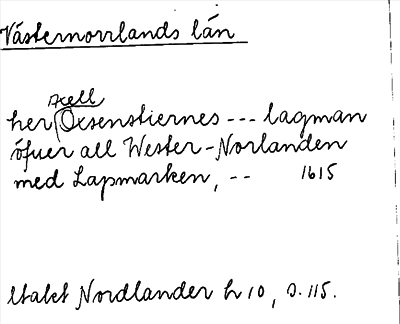 Västernorrlands län
Axell
her Oxsenstiernes --- lagman
öfuer all Wester-Norlanden
med Lapmarken, -- 1615
Utakt Nordlander h 10, s. 115.